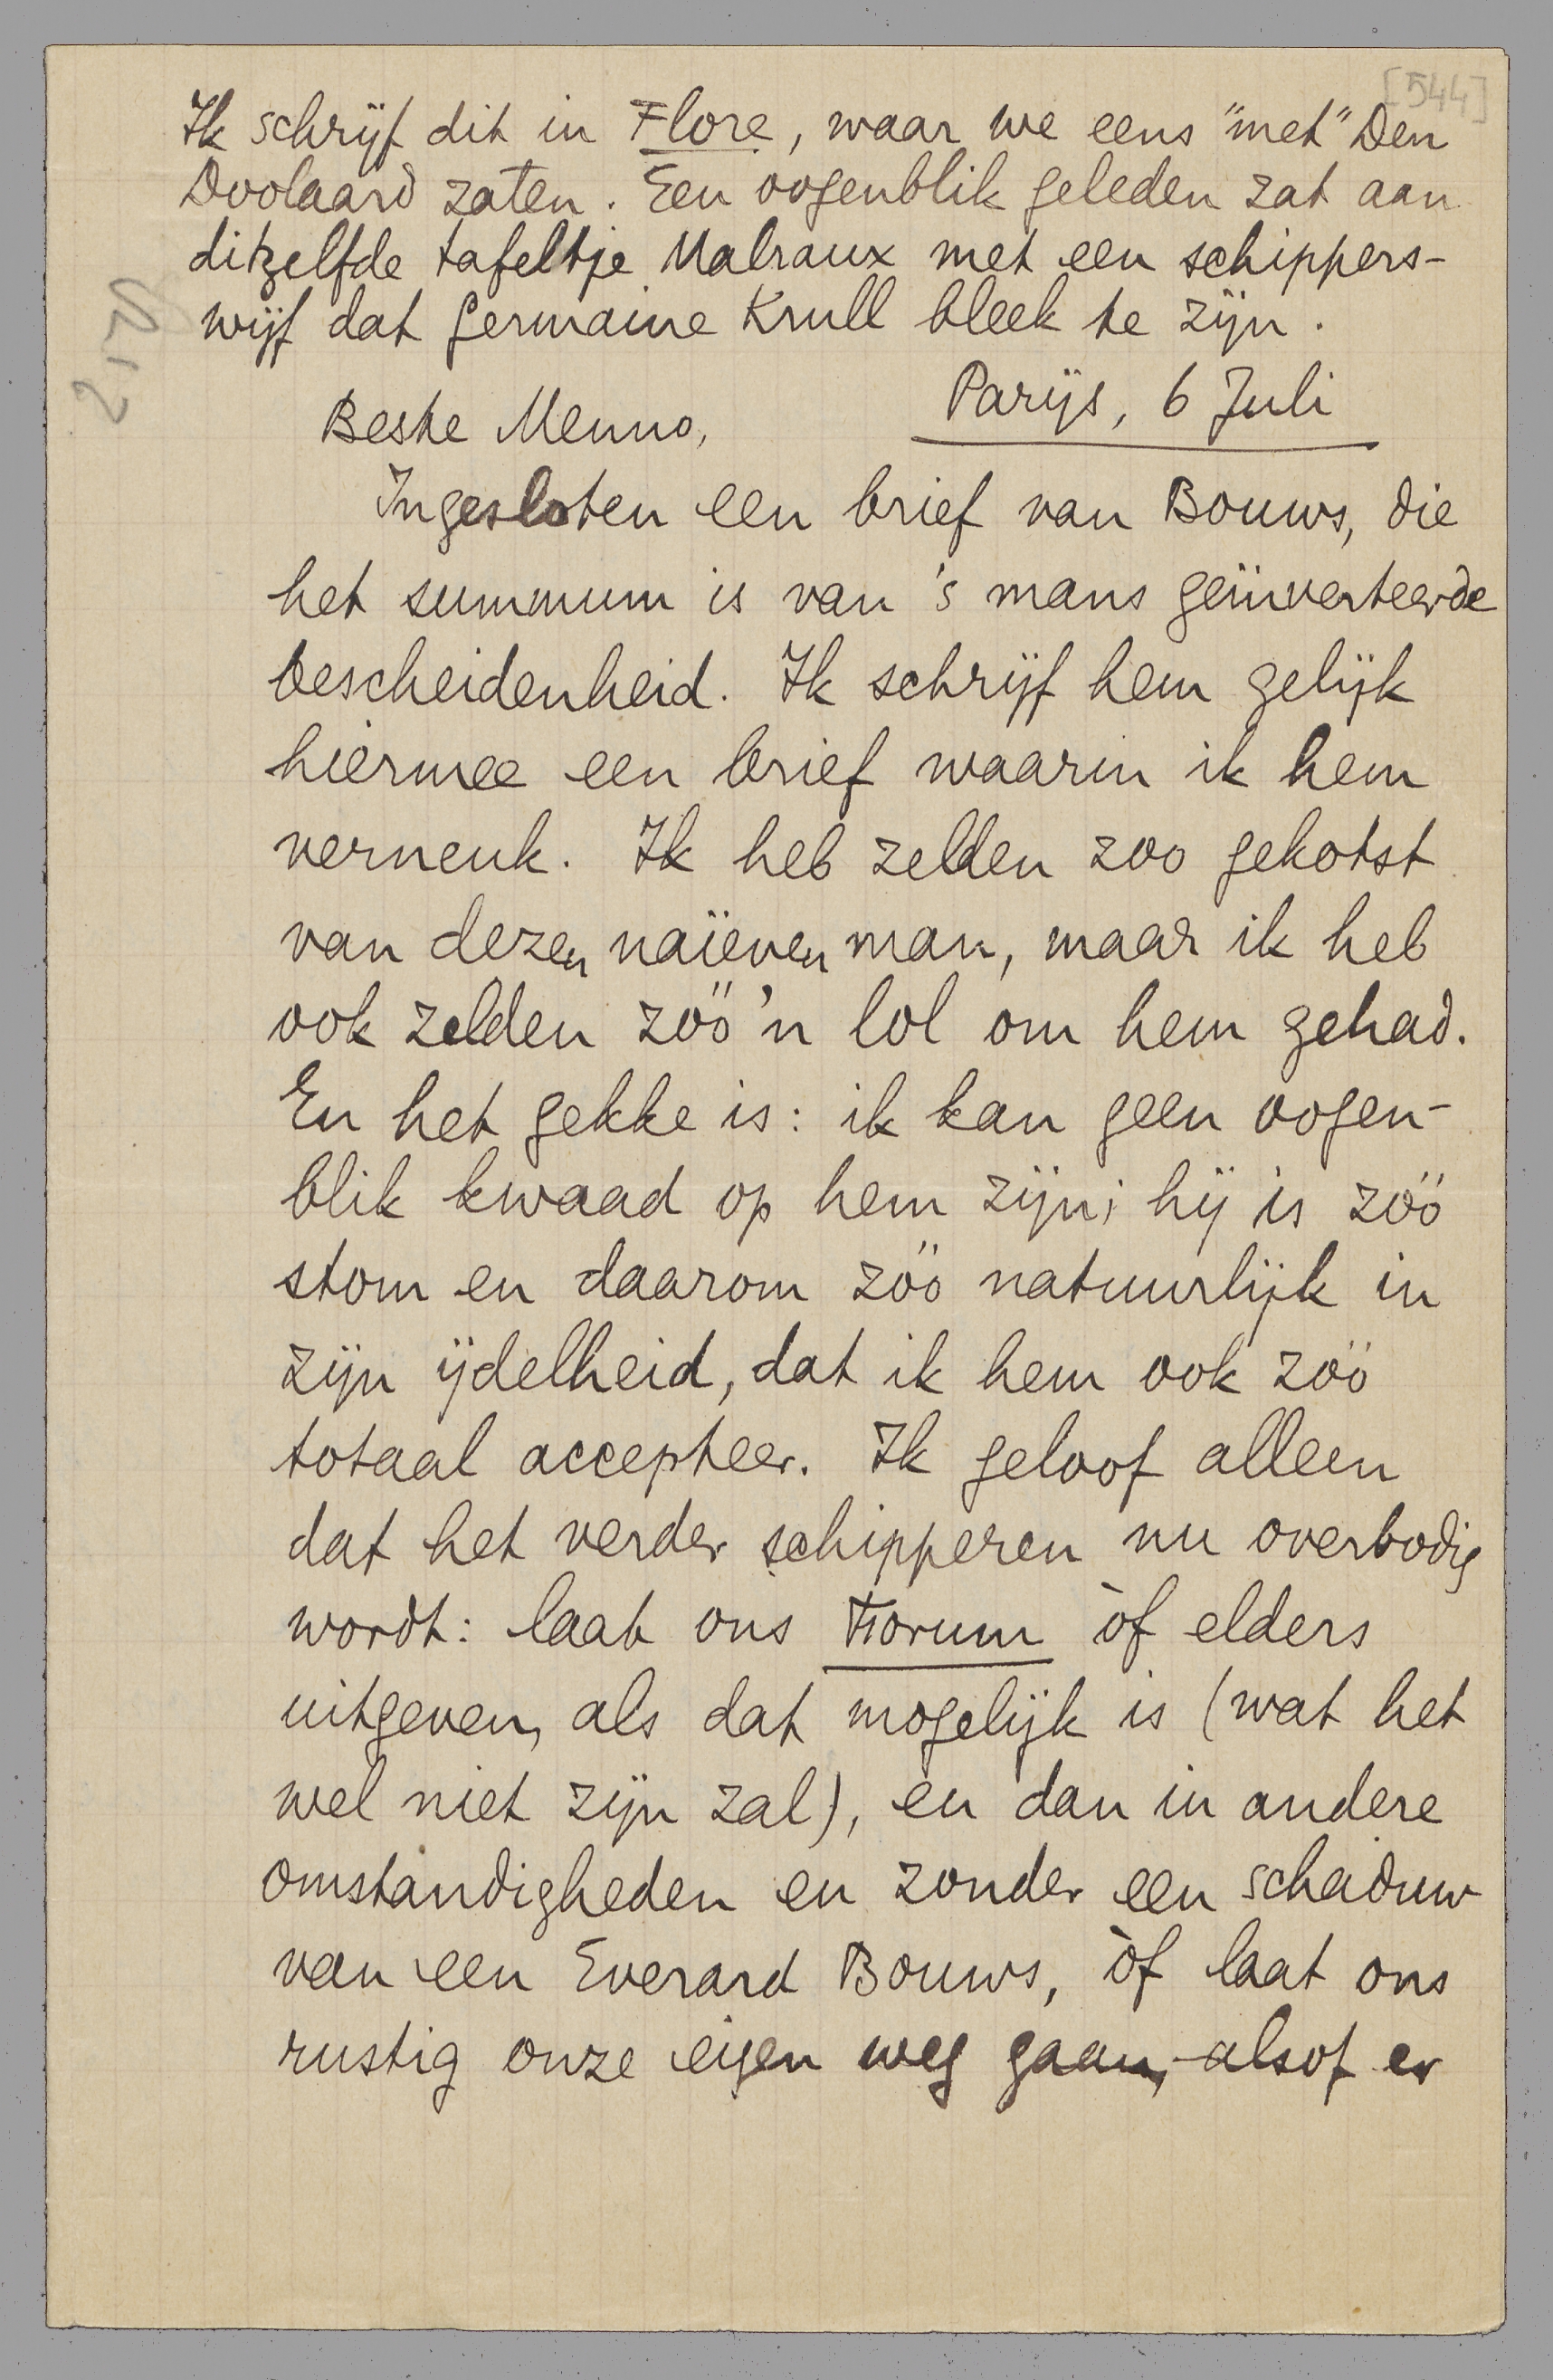 [544]
Ik schrijf dit in Flore, waar we eens "met" Den
Doolaard zaten. Een oogenblik geleden zat aan
ditzelfde tafeltje Malraux met een schippers-
wijf dat Germaine Krull bleek te zijn.
Parijs, 6 Juli
Beste Menno,
Ingesloten een brief van Bouws, die
het summum is van 's mans geïnverteerde
bescheidenheid. Ik schrijf hem gelijk
hiermee een brief waarin ik hem
verneuk. Ik heb zelden zoo gekotst
van dezen naïeven man, maar ik heb
ook zelden zóó'n lol om hem gehad.
En het gekke is: ik kan geen oogen-
blik kwaad op hem zijn; hij is zóó
stom en daarom zóó natuurlijk in
zijn ijdelheid, dat ik hem ook zóó
totaal accepteer. Ik geloof alleen
dat het verder schipperen nu overbodig
wordt: laat ons Forum òf elders
uitgeven, als dat mogelijk is (wat het
wel niet zijn zal), en dan in andere
omstandigheden en zonder een schaduw
van een Everard Bouws, òf laat ons
rustig onze eigen weg gaan, alsof er